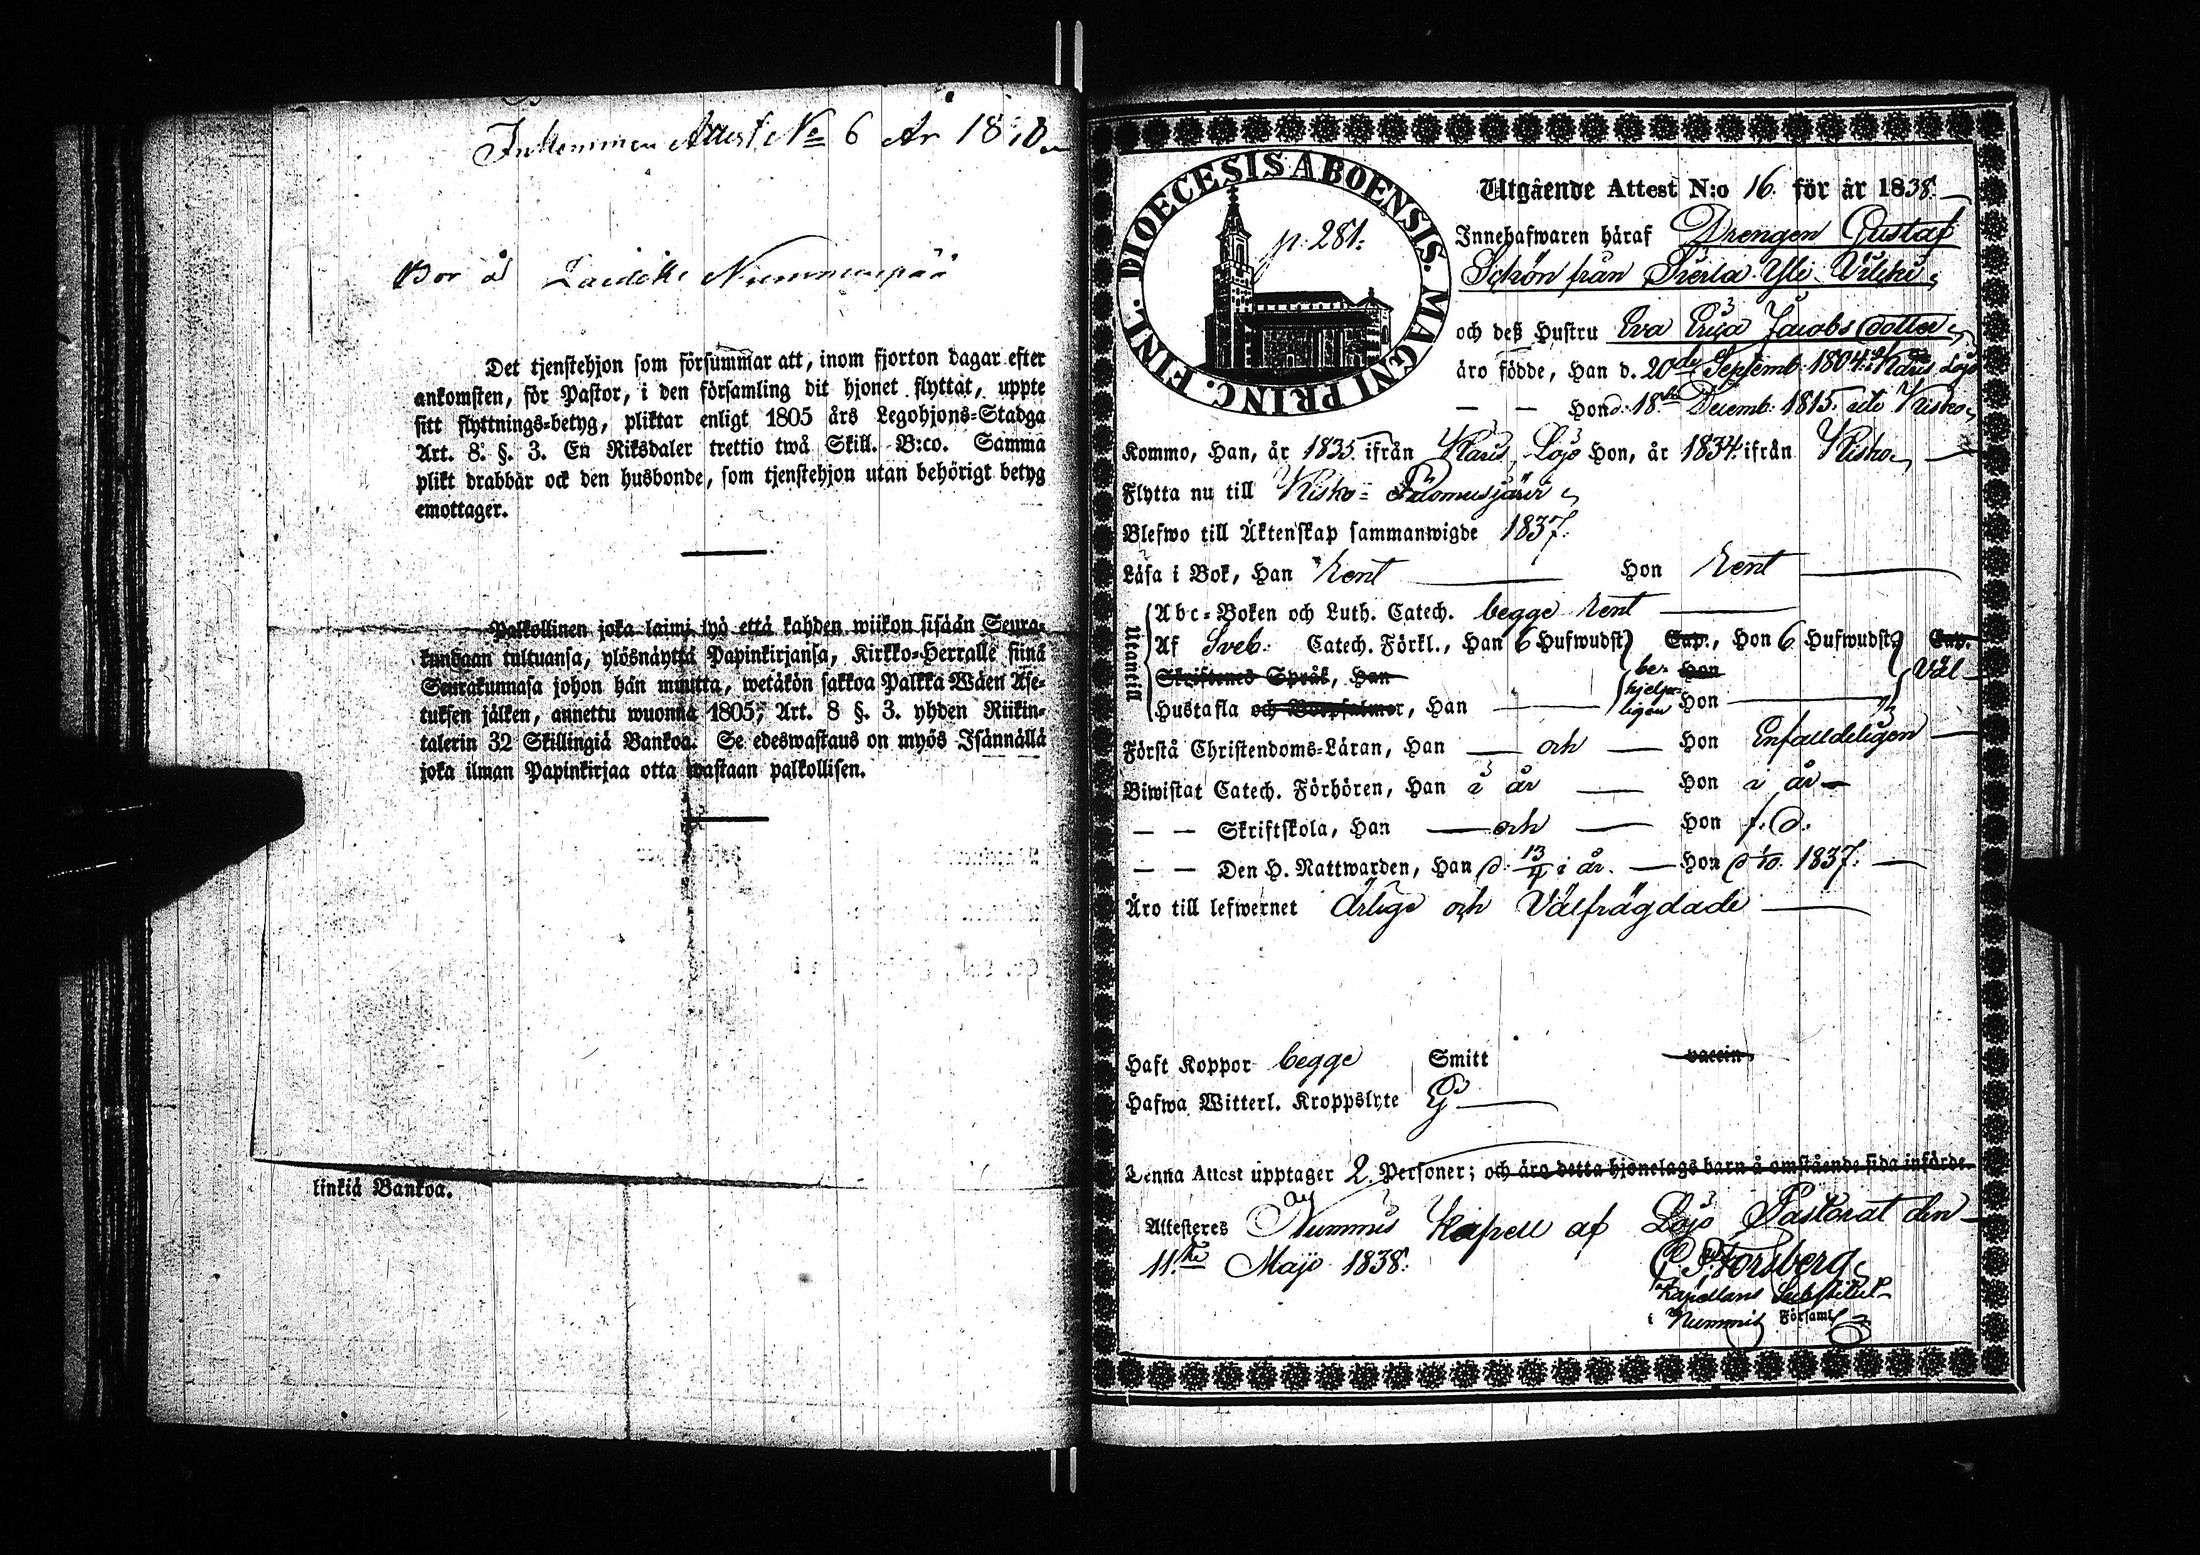 Inkommen Attest No 6 År 18
Bor å Nummenpää
Det tjenstehjon som försummar att, inom fjorton dagar efter
ankomsten, för Pastor, i den församling dit hjonet flyttat, uppte
sitt flyttnings=betyg, pliktar enligt 1805 års Legohjons=Stadga
Art. 8. §. 3. En Riksdaler trettio twå Skill. B:co. Samma
plikt drabbar ock den husbonde, som tjenstehjon utan behörigt betyg
emottager.
Palkollinen joka laimi lyö että kahden wiikon sisään Seura=
kundaan tultuansa, ylösnäyttä Papinkirjansa, Kirkko=Herralle siinä
Seurakunnasa johon hän muutta, wetäkön sakkoa Palkka Wäen Ase=
tuksen jälken, annettu wuonna 1805, Art. 8 §. 3. yhden Riikin=
talerin 32 Skillingiä Bankoa. Se edeswastaus on myös Isännällä
joka ilman Papinkirjaa otta wastaan palkollisen.
linkiä Bankoa.
DIOECESIS ABOENSIS. MAGNI PRINC. FINL.
p. 281.
Utgående Attest N:o 16. för år 1838.
Innehafwaren häraf Drengen Gustaf
Schön från
och deß Hustru Eva Erica Jacobs dotter,
äro födde, Han d. 20de Septemb. 1804. i Karis Lojo
— — Hon d. 18de Decemb. 1815. i Kisko,
Kommo, Han, år 1835. ifrån Karis Lojo Hon, år 1834. ifrån Kisko,
Flytta nu till Kisko=
Blefwo till Äktenskap sammanwigde 1837.
Läsa i Bok, Han Rent Hon Rent
Utantill
Abc=Boken och Luth. Catech. begge rent
Af Sveb. Catech. Förkl., Han 6 Hufwudst. Cap., Hon 6 Hufwudst. Cap.
Skriftenes Språk, Han — Hon Väl
Hustafla och Botpsalmer, Han — behjelpeligen Hon —
Förstå Christendoms=Läran, Han — och — Hon Enfalldeligen
Biwistat Catech. Förhören, Han i år — Hon i år
— — Skriftskola, Han — och — Hon f. d.
— — Den H. Nattwarden, Han d. i år. — Hon d. 1837.
Äro till lefwernet Ärlige och Välfrägdade
Haft Koppor begge Smitt vaccin.
Hafwa Witterl. Kroppslyte Ej
Denna Attest upptager 2. Personer; och äro detta hjonelags barn å omstående sida införde.
Attesteres Nummis Kapell af Lojo Pastorat den
11te Maji 1838.
Forsberg.
Kapellans Substitut
i Nummis Församl.